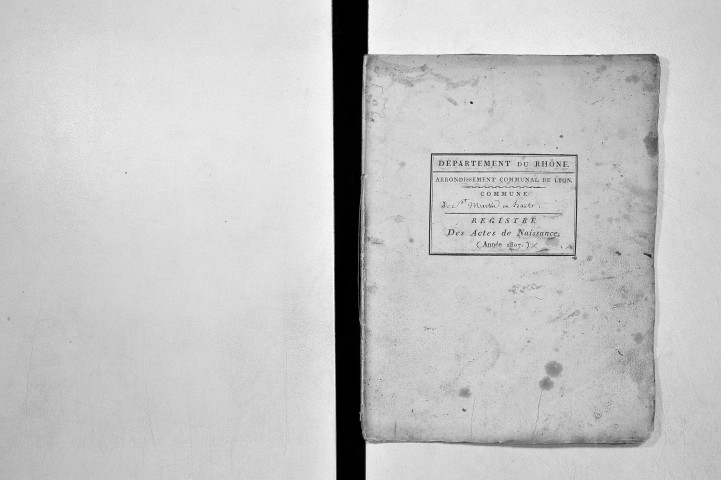 DÉPARTEMENT DU RHÔNE.
ARRONDISSEMENT COMMUNAL DE LYON.
COMMUNE
De St Martin en haut.
REGISTRE
Des Actes de Naissance.
(Année 1807.)